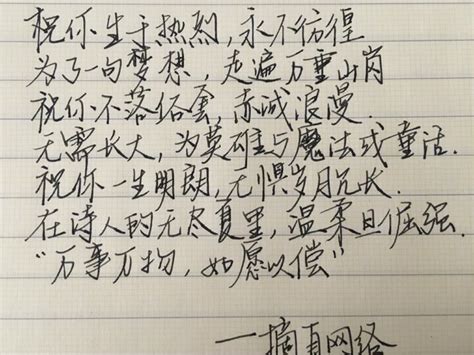 祝你生于热烈,永不彷徨
为了一句梦想,走遍万重山岗
祝你不落俗套,赤诚浪漫.
无需长大,为英雄与魔法或童话.
祝你一生明朗,无惧岁月冗长.
在诗人的无尽夏里,温柔且倔强.
“万事万物,如愿以偿”
—摘自网络